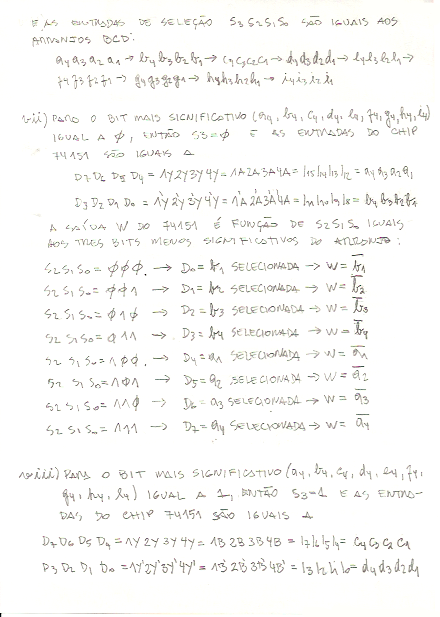 E AS ENTRADAS DE SELEÇÃO S3S2S1S0 SÃO IGUAIS AOS
ARRANJOS BCD:
a4a3a2a1 → b4b3b2b1 → c4c3c2c1 → d4d3d2d1 → e4e3e2e1 →
f4f3f2f1 → g4g3g2g1 → h4h3h2h1 → i4i3i2i1
vii) PARA O BIT MAIS SIGNIFICATIVO (a4, b4, c4, d4, e4, f4, g4, h4, i4)
IGUAL A φ, ENTÃO S3=φ E AS ENTRADAS DO CHIP
74151 SÃO IGUAIS A
D7 D6 D5 D4 = 1Y 2Y 3Y 4Y = 1A 2A 3A 4A = I15 I14 I13 I12 = a4 a3 a2 a1
D3 D2 D1 D0 = 1'Y 2'Y 3'Y 4'Y = 1'A 2'A 3'A 4'A = I11 I10 I9 I8 = b4 b3 b2 b1
A SAÍDA W DO 74151 É FUNÇÃO DE S2S1S0 IGUAIS
AOS TRES BITS MENOS SIGNIFICATIVOS DO ARRANJO:
S2 S1 S0 = φφφ. → D0 = b1 SELECIONADA → W = b̅1
S2 S1 S0 = φφ1 → D1 = b2 SELECIONADA → W = b̅2
S2 S1 S0 = φ1φ → D2 = b3 SELECIONADA → W = b̅3
S2 S1 S0 = φ11 → D3 = b4 SELECIONADA → W = b̅4
S2 S1 S0 = 1φφ → D4 = a1 SELECIONADA → W = a̅1
S2 S1 S0 = 1φ1 → D5 = a2 SELECIONADA → W = a̅2
S2 S1 S0 = 11φ → D6 = a3 SELECIONADA → W = a̅3
S2 S1 S0 = 111 → D7 = a4 SELECIONADA → W = a̅4
viii) PARA O BIT MAIS SIGNIFICATIVO (a4, b4, c4, d4, e4, f4,
g4, h4, i4) IGUAL A 1, ENTÃO S3=1 E AS ENTRA-
DAS DO CHIP 74151 SÃO IGUAIS A
D7 D6 D5 D4 = 1Y 2Y 3Y 4Y = 1B 2B 3B 4B = I7 I6 I5 I4 = c4 c3 c2 c1
D3 D2 D1 D0 = 1Y' 2Y' 3Y' 4Y' = 1B' 2B' 3B' 4B' = I3 I2 I1 I0 = d4 d3 d2 d1